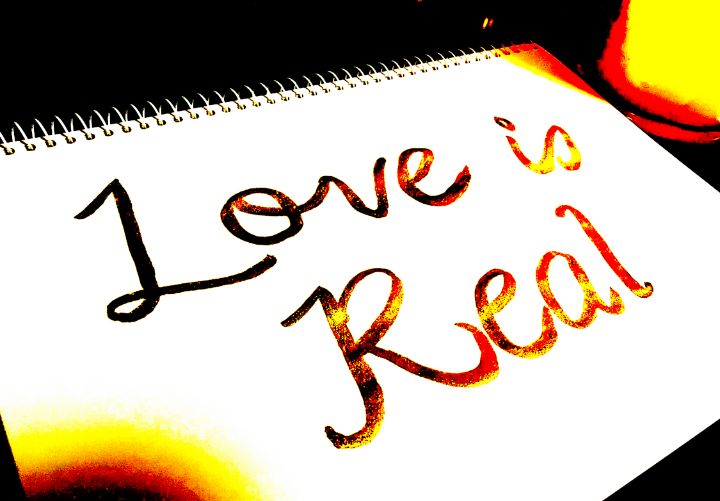 Love is
Real